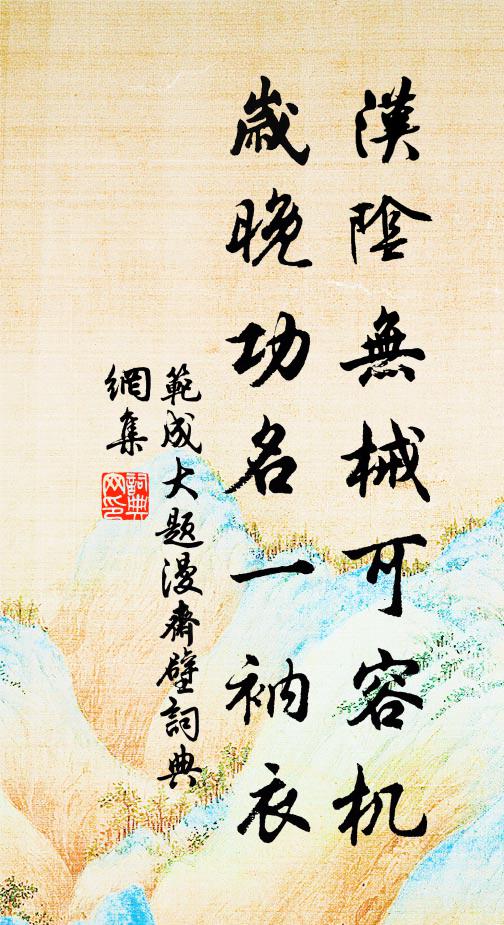 漢陰無械可容机
歲晚功名一衲衣
範成大题漫齋壁詞典
網集
詞典
网印